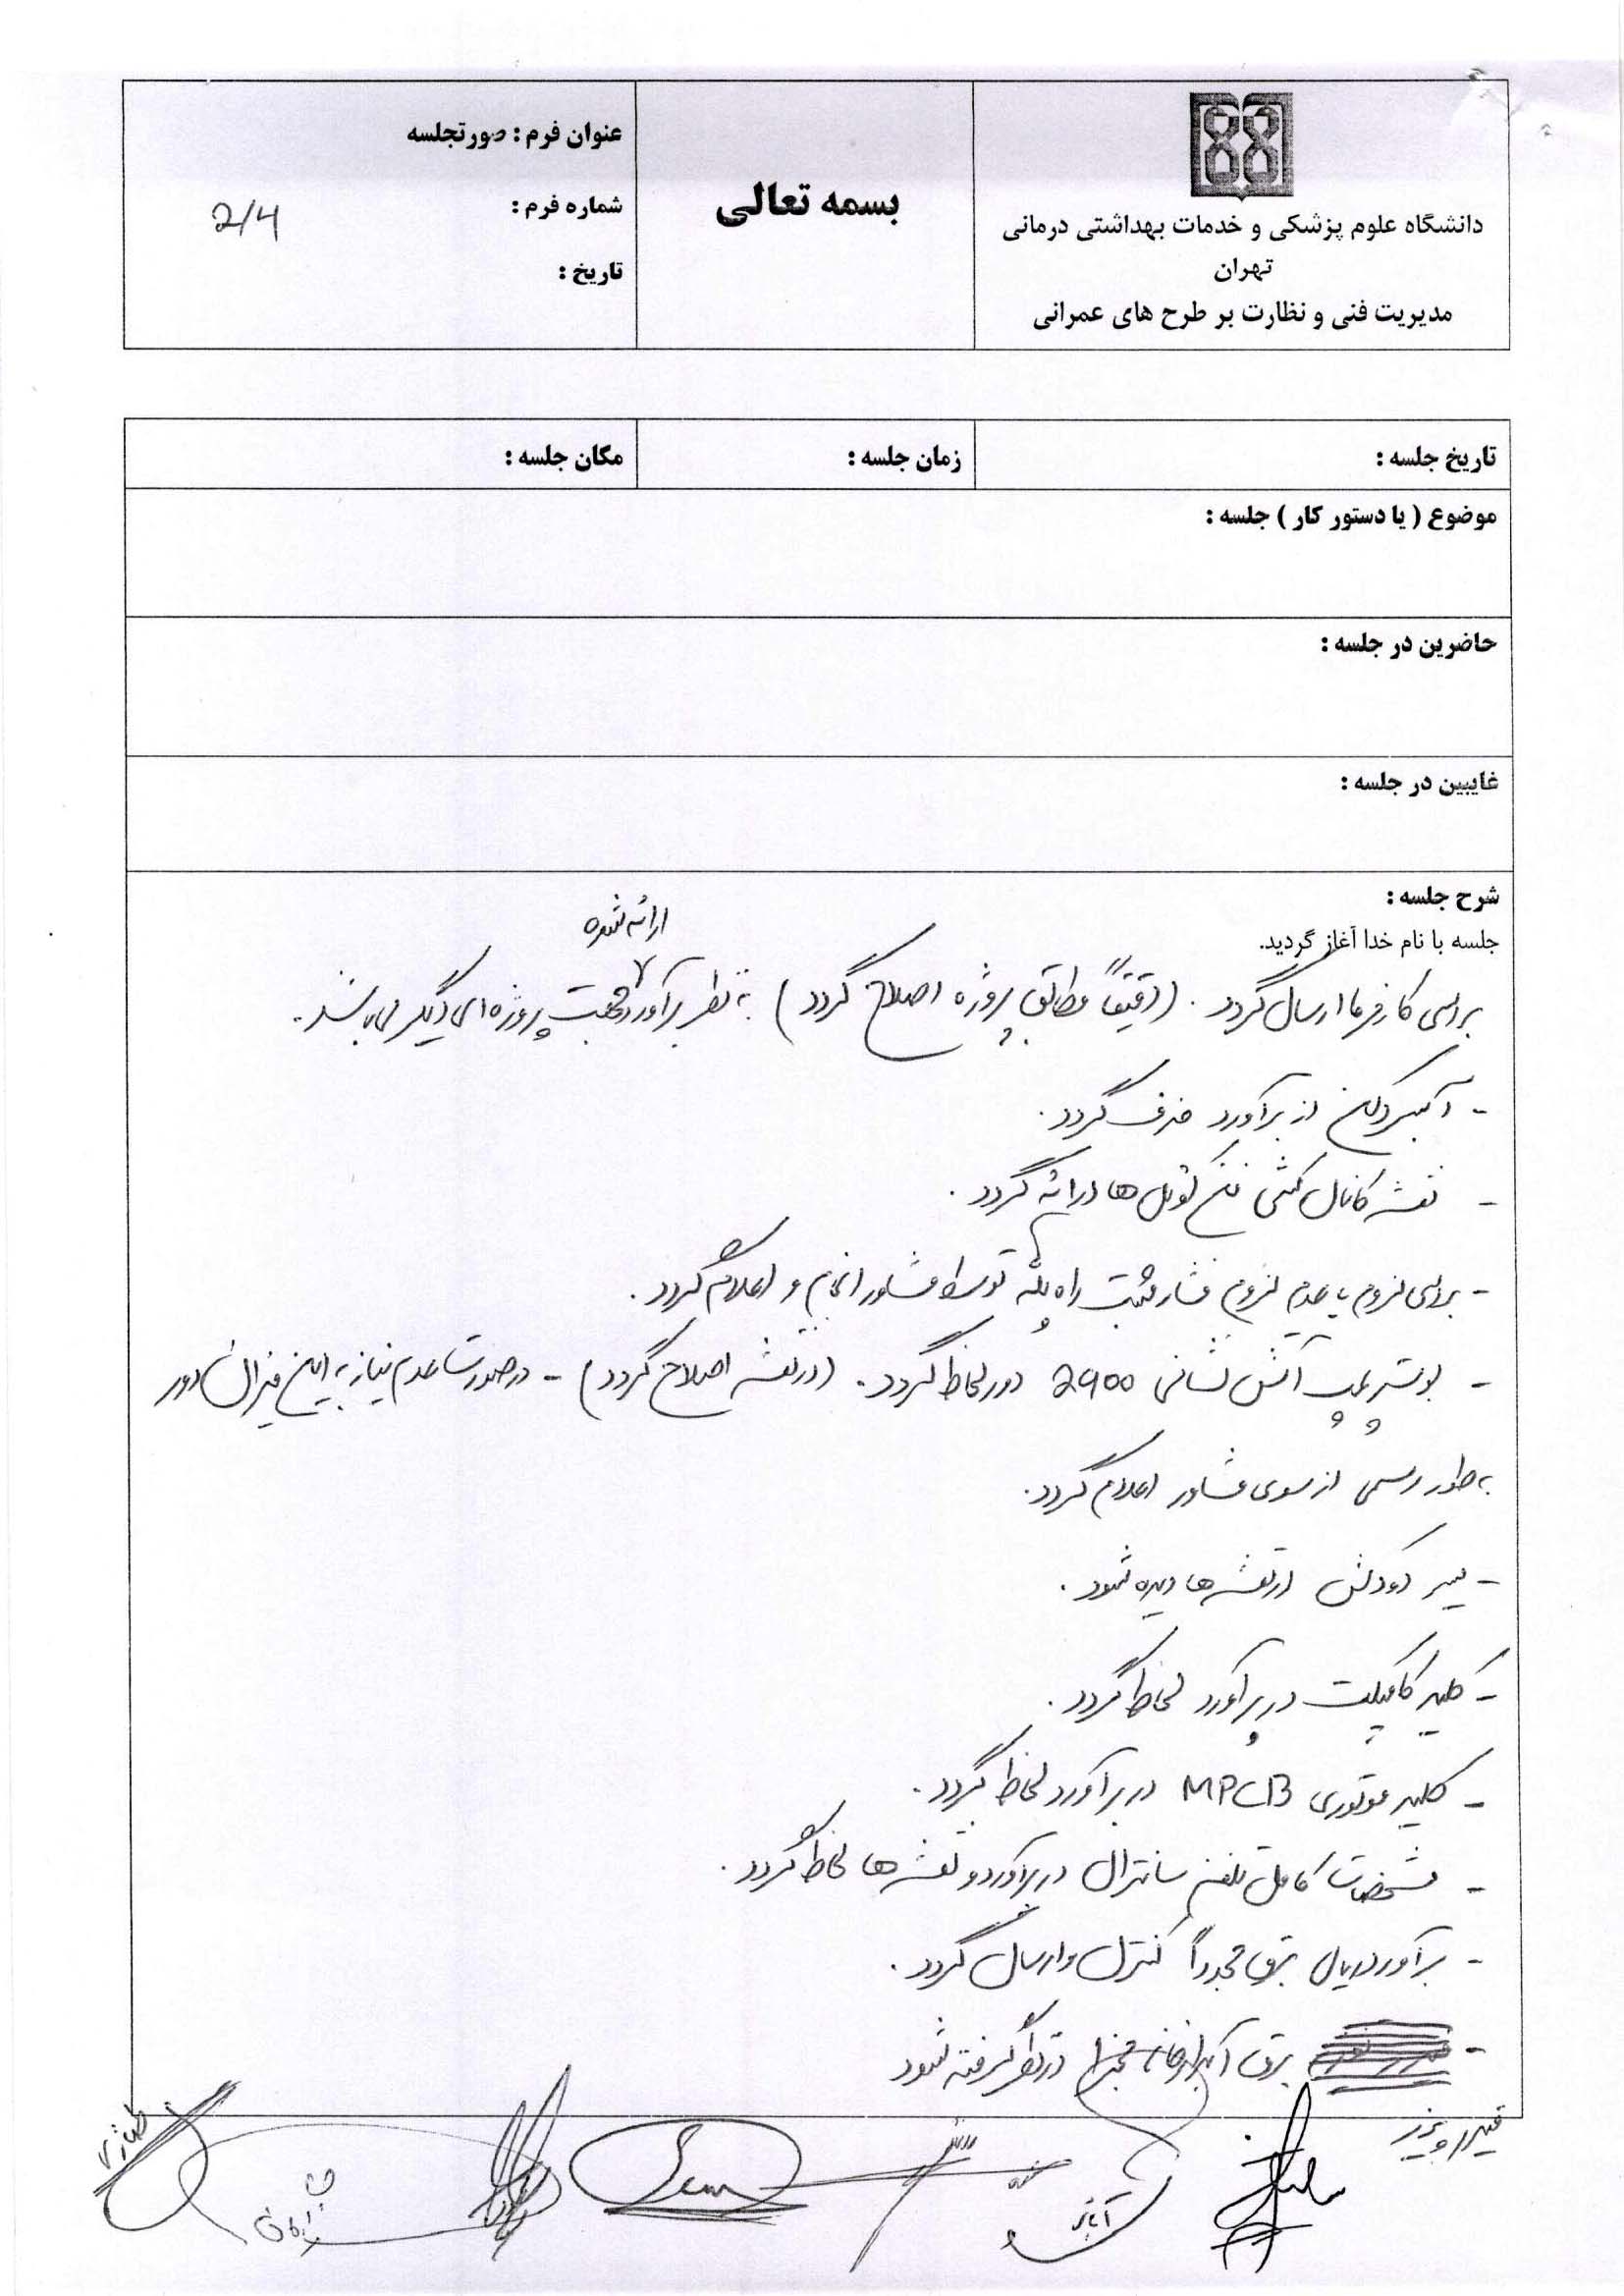 دانشگاه علوم پزشکی و خدمات بهداشتی درمانی
تهران
مدیریت فنی و نظارت بر طرح های عمرانی
بسمه تعالی
عنوان فرم : صورتجلسه
شماره فرم : 2/4
تاریخ :
تاریخ جلسه : زمان جلسه : مکان جلسه :
موضوع ( یا دستور کار ) جلسه :
حاضرین در جلسه :
غایبین در جلسه :
شرح جلسه :
جلسه با نام خدا آغاز گردید.
ارائه شده
برای کارفرما ارسال گردد . (دقیقاً مطابق پروژه اصلاح گردد) به نظر برآورد جهت پروژه ای دیگر می باشد .
- آبسردکن از برآورد حذف گردد .
- نقشه کانال کشی فن کویل ها ارائه گردد .
- بررسی لزوم یا عدم لزوم فشار مثبت راه پله توسط مشاور انجام و اعلام گردد .
- بوستر پمپ آتش نشانی 2900 دور لحاظ گردد . (در نقشه اصلاح گردد) - در صورت عدم نیاز به این میزان دور
به طور رسمی از سوی مشاور اعلام گردد .
- مسیر دودکش در نقشه ها دیده شود .
- کلید کامپکت در برآورد لحاظ گردد .
- کلید موتوری MPCB در برآورد لحاظ گردد .
- مشخصات کامل تلفن سانترال در برآورد و نقشه ها لحاظ گردد .
- برآورد ریالی برق مجدداً کنترل و ارسال گردد .
- برق آبدارخانه مجزا در نظر گرفته شود